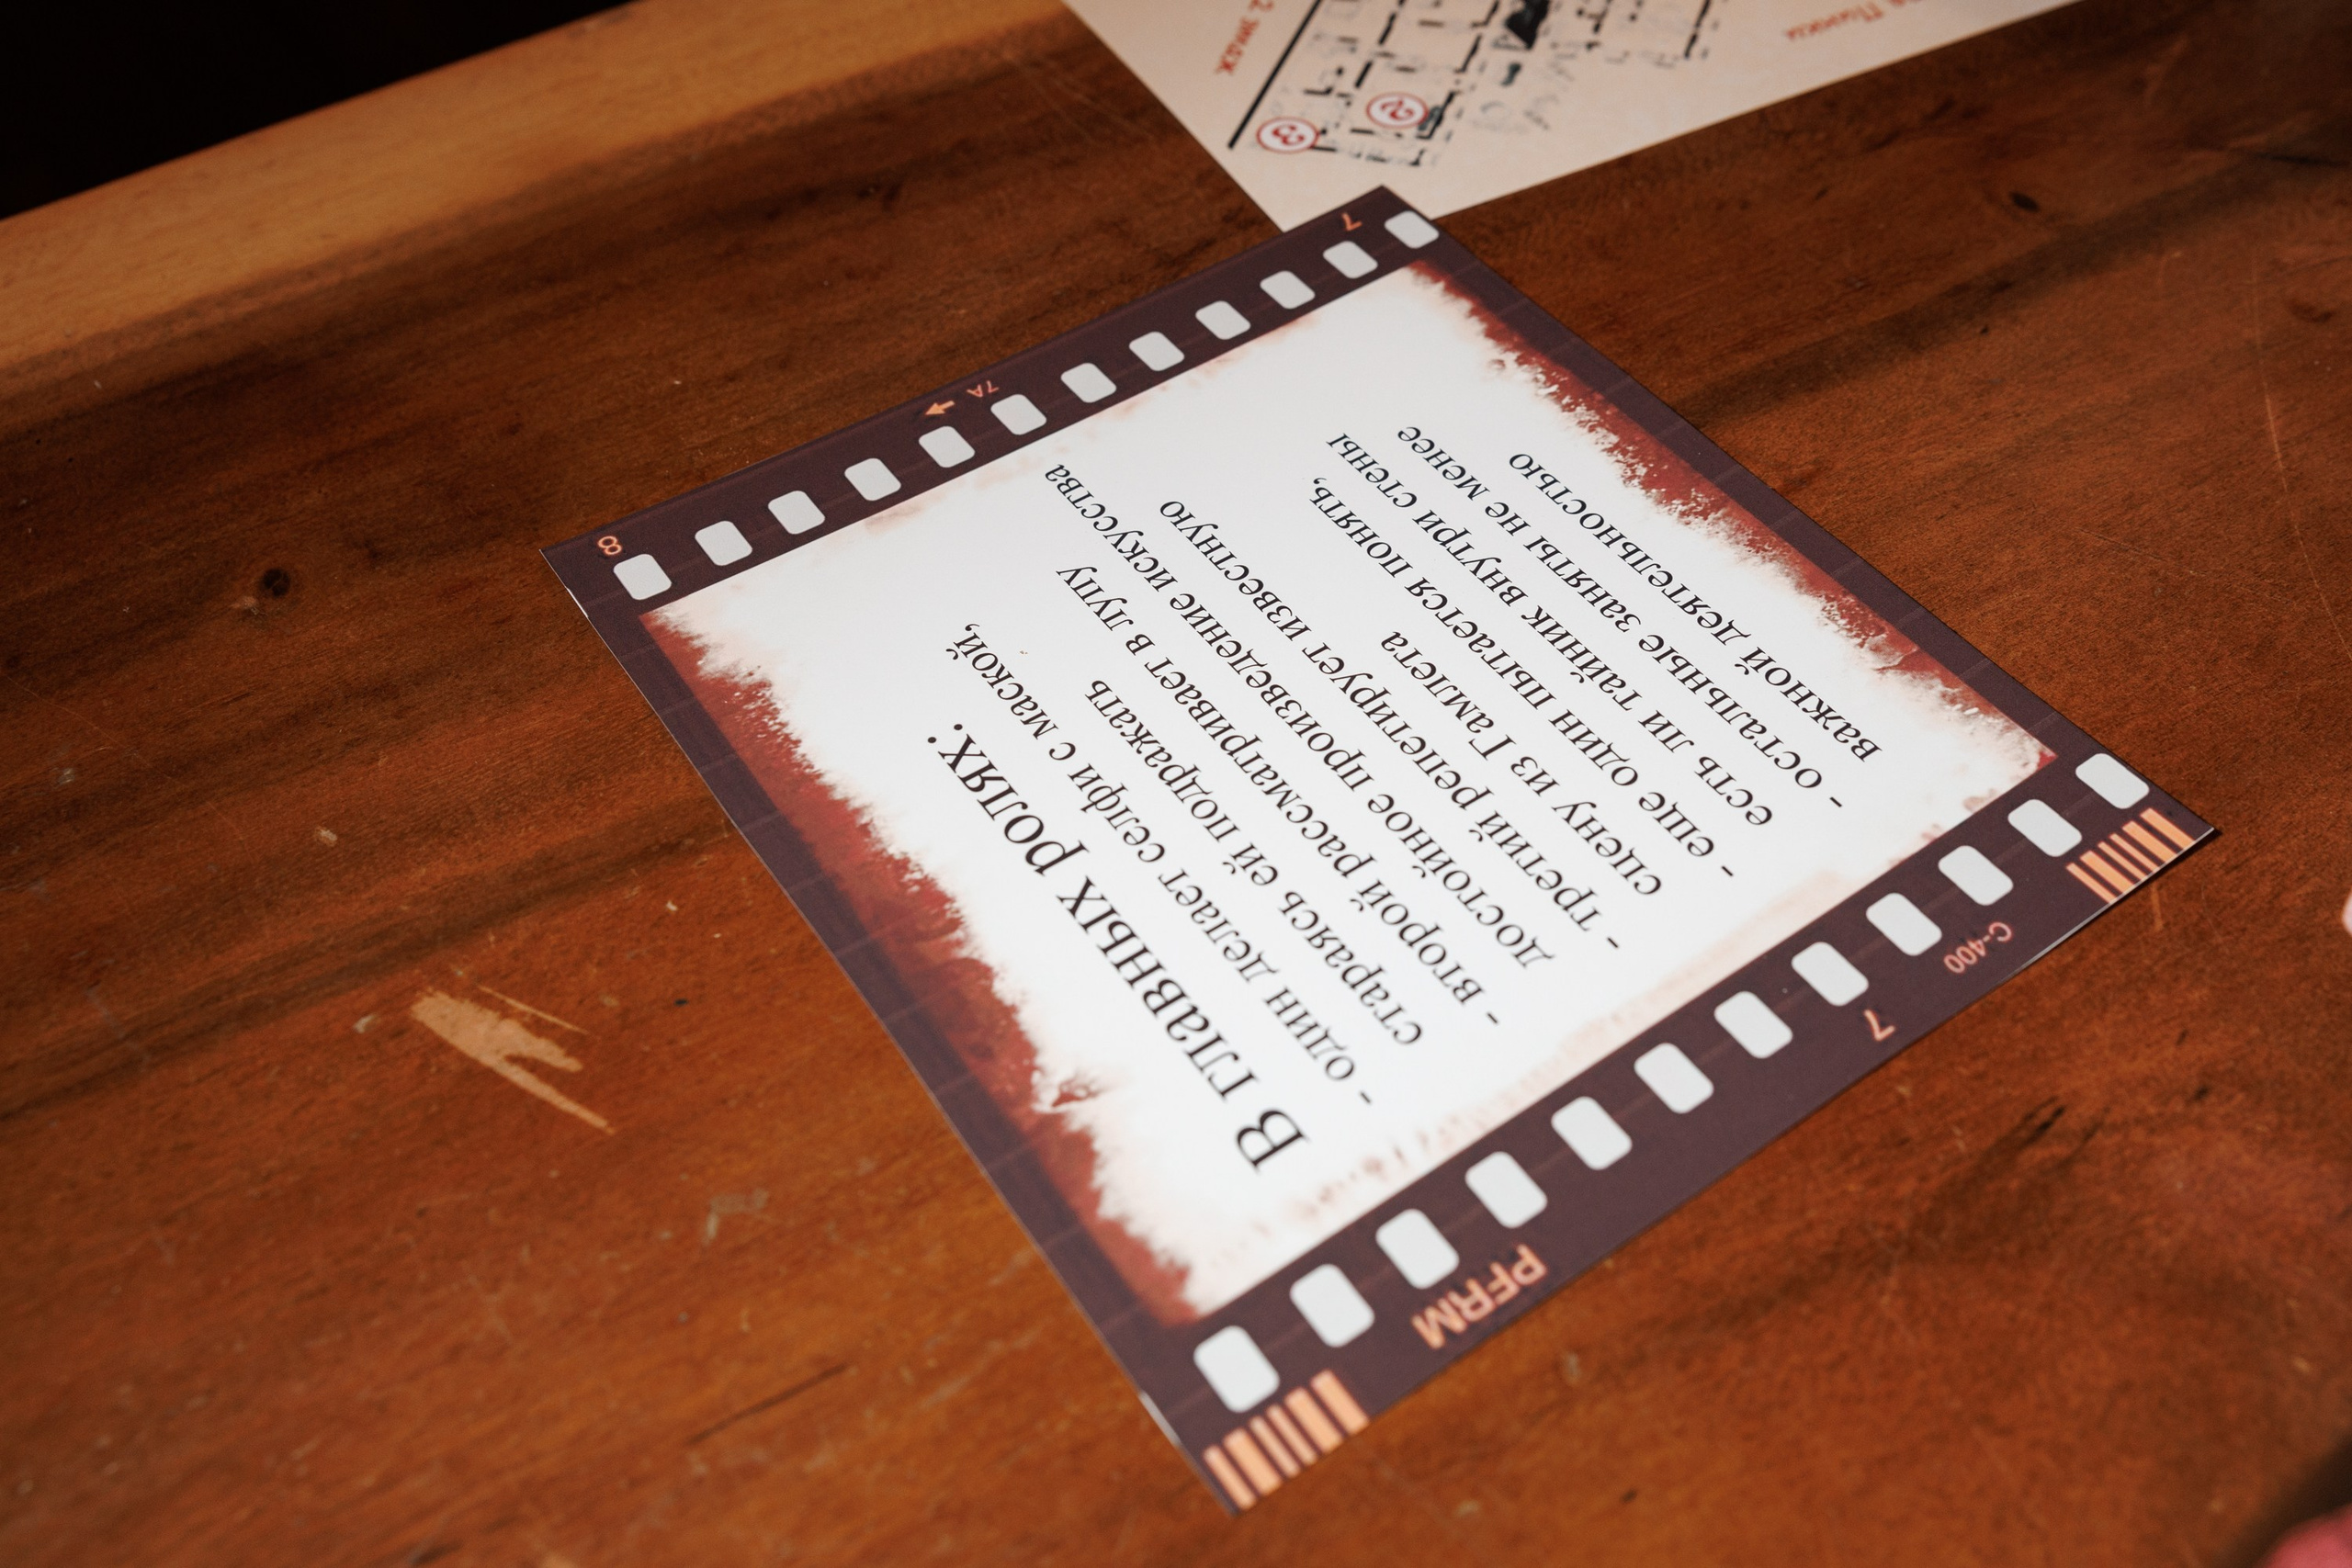 В главных ролях:
- один делает селфи с маской,
стараясь ей подражать
- второй рассматривает в лупу
достойное произведение искусства
- третий репетирует известную
сцену из Гамлета
- еще один пытается понять,
есть ли тайник внутри стены
- остальные заняты не менее
важной деятельностью
PFRM
7
C-400
8
7A
7
2 этаж
2
3